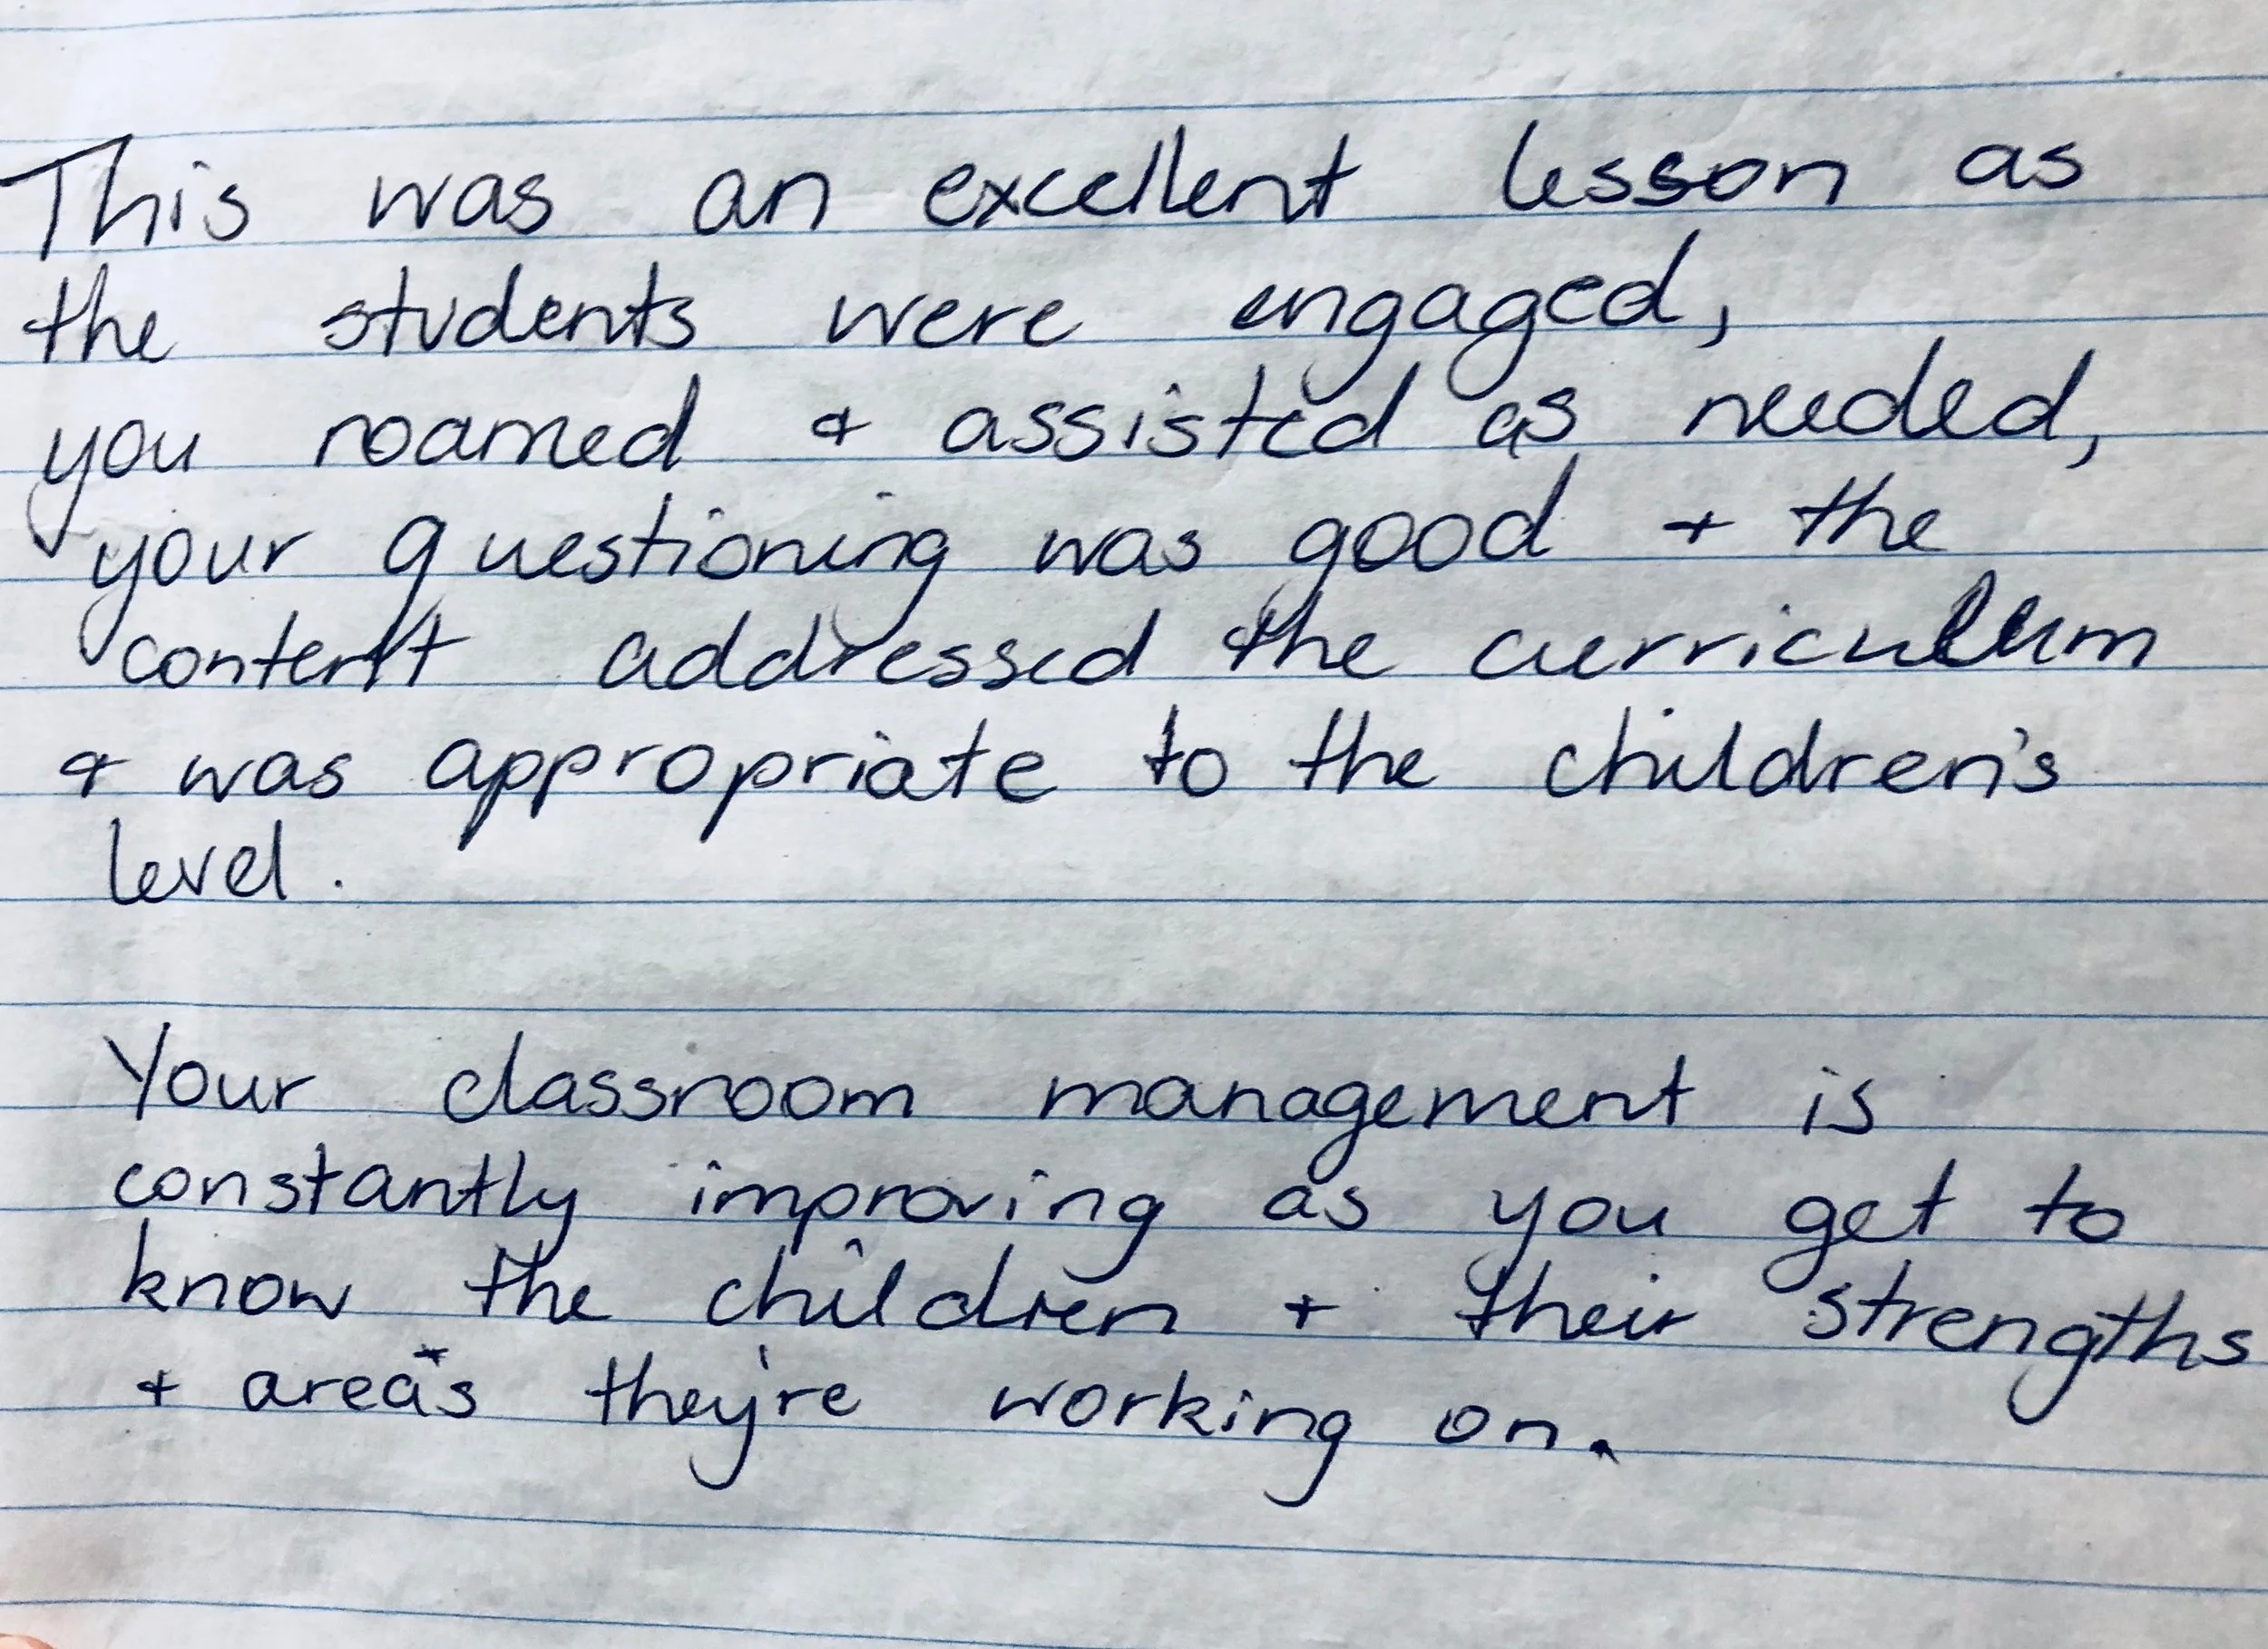 This was an excellent lesson as
the students were engaged,
you roamed & assisted as needed,
your questioning was good + the
content addressed the curriculum
& was appropriate to the children's
level.
Your classroom management is
constantly improving as you get to
know the children + their strengths
+ areas they're working on.